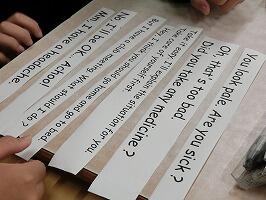 You look pale. Are you sick?
Oh, that's too bad.
Did you take any medicine?
Take it easy. I'll explain the situation for you.
Take care of yourself first.
Hey, I think you should go home and go to bed.
But I have a club meeting. What should I do?
No. I'll be OK... Achoo!
Mm, I have a headache.